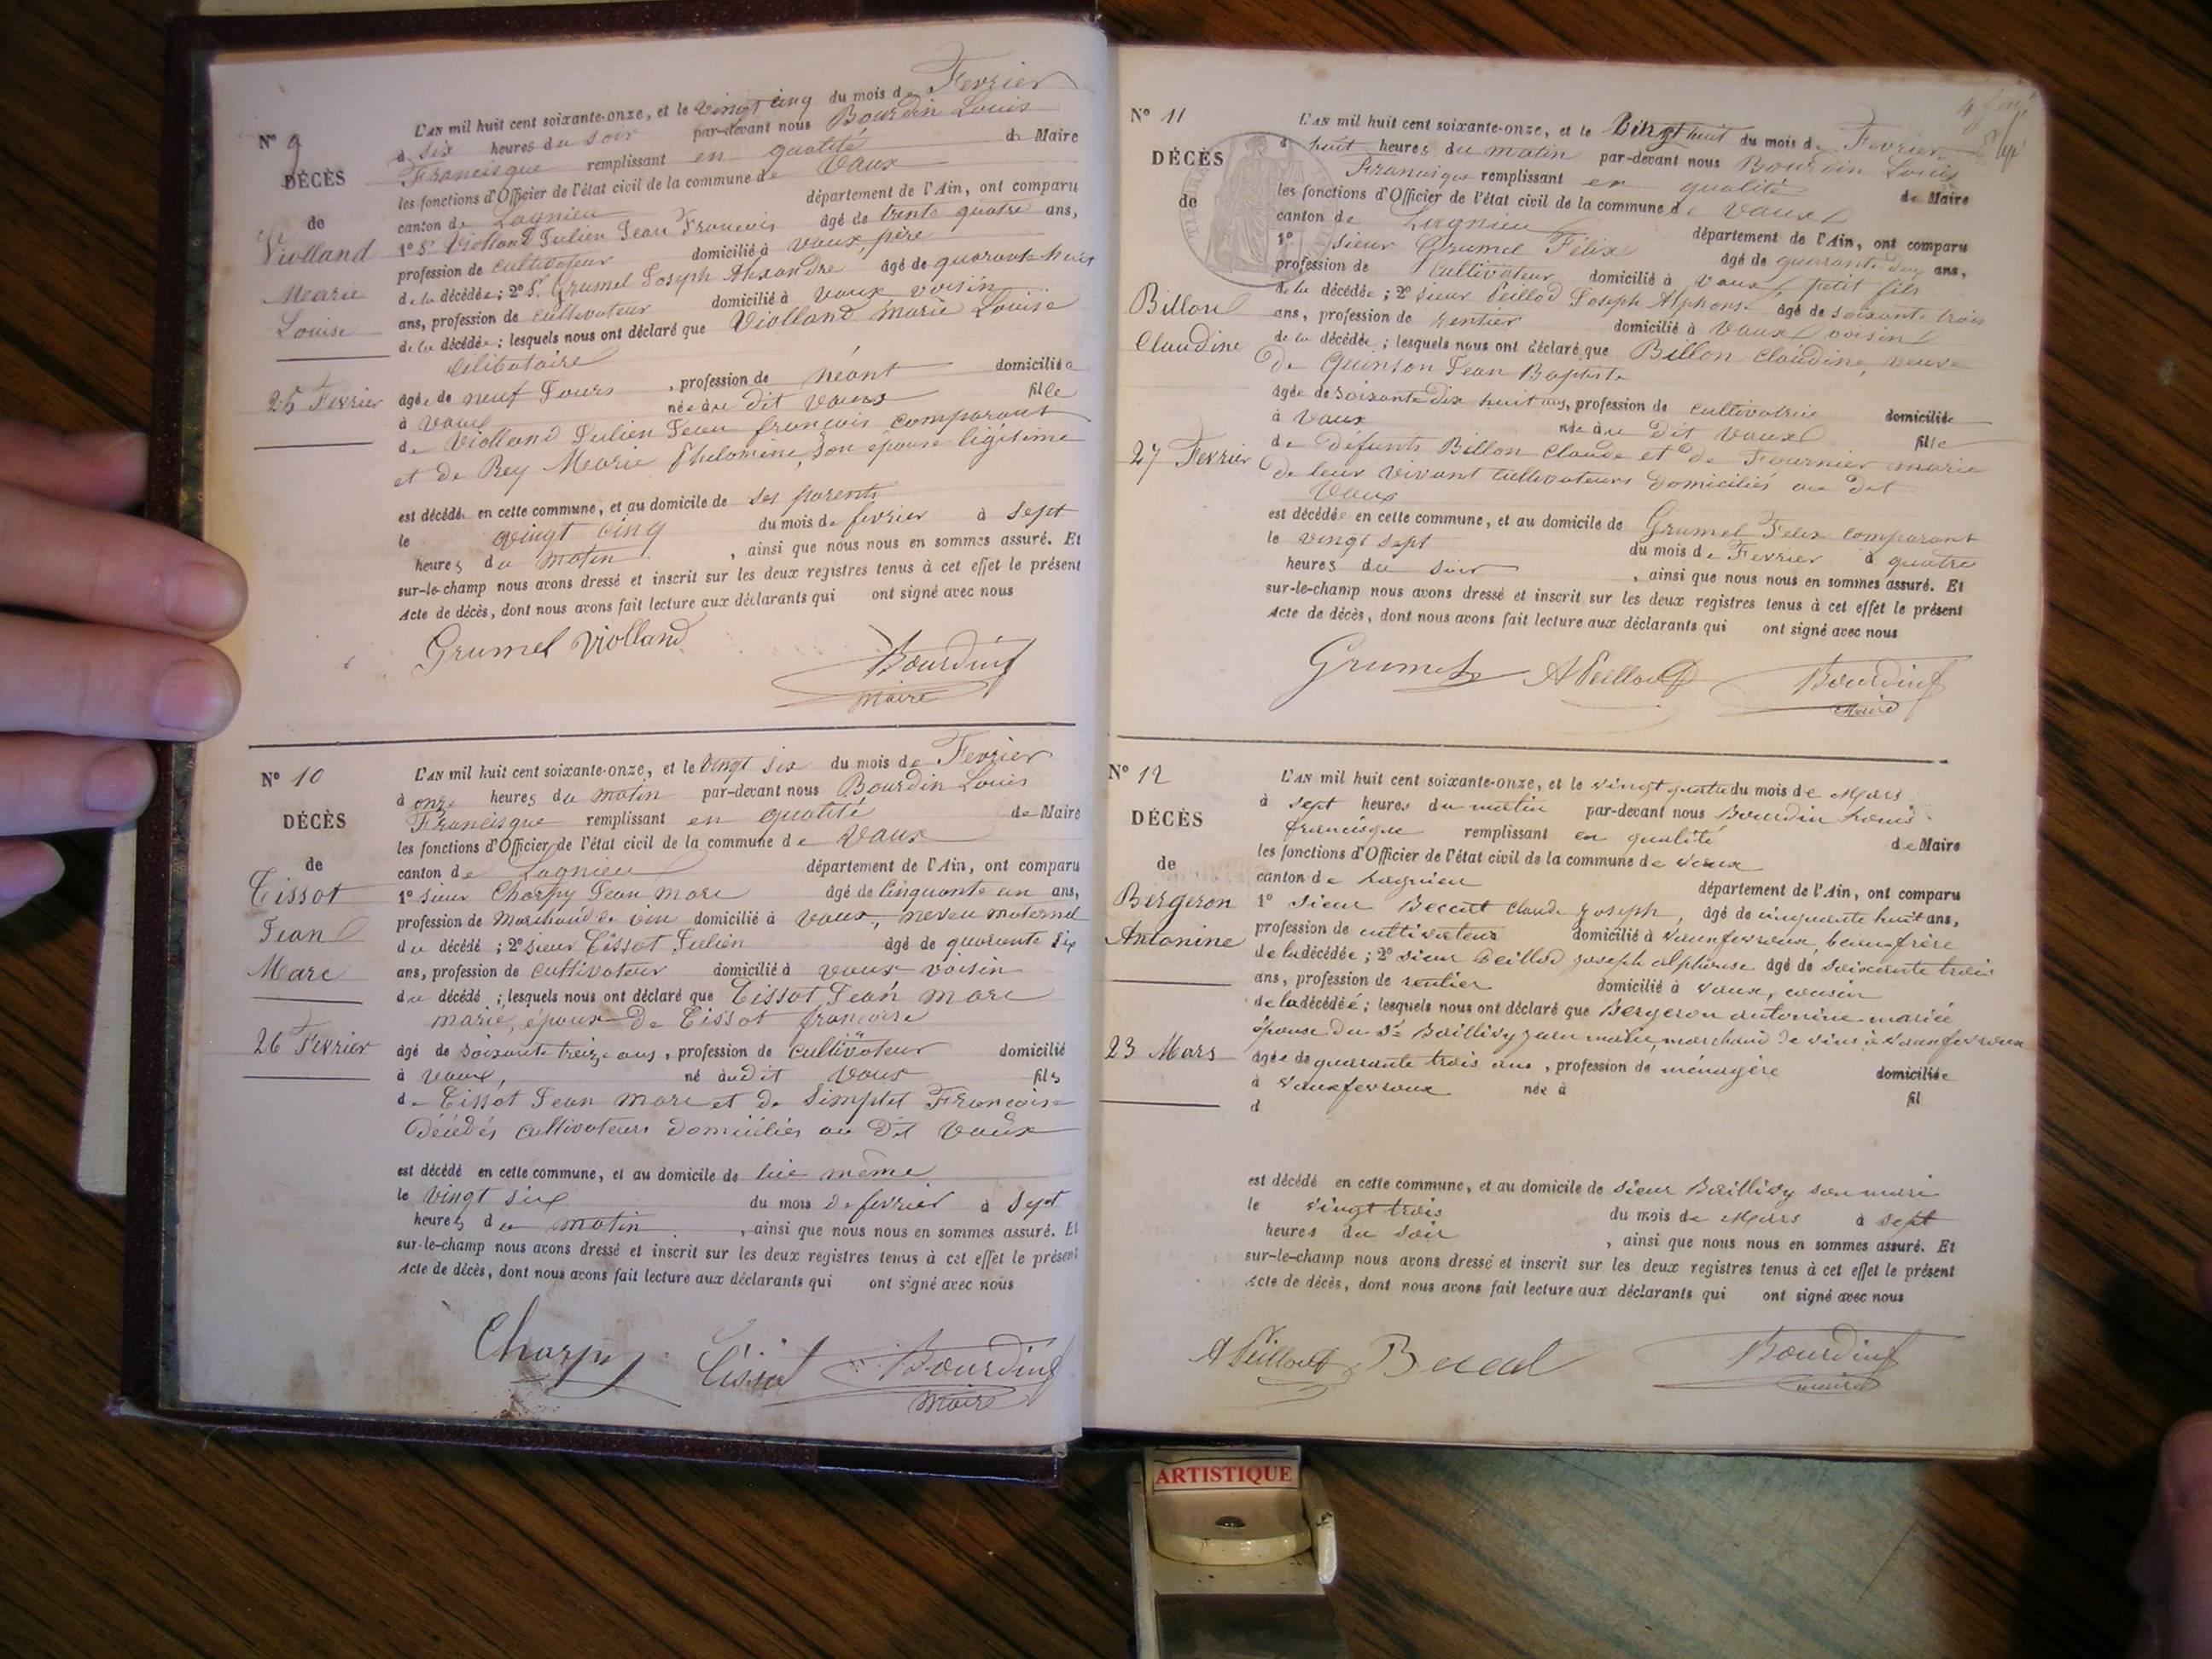 N° 9
DÉCÈS
de
Violland
Marie
Louise
25 Fevrier
L'AN mil huit cent soixante-onze, et le vingt cinq du mois de Fevrier
à six heures du soir par-devant nous Bourdin Louis
Francisque remplissant en qualité de Maire
les fonctions d'Officier de l'état civil de la commune de Vaux
canton de Lagnieu département de l'Ain, ont comparu
1° Sr Violland Julien Jean Francois âgé de trente quatre ans,
profession de cultivateur domicilié à Vaux, père
de la décédée; 2° Sr. Grumel Joseph Alexandre âgé de quarante huit
ans, profession de cultivateur domicilié à Vaux voisin
de la décédée; lesquels nous ont déclaré que Violland marie Louise
Célibataire
âgée de neuf Jours, profession de néant domiciliée
à Vaux née au dit Vaux fille
de Violland Julien Jean francois comparant
et de Rey Marie Philomène, son epouse ligitime
est décédée en cette commune, et au domicile de ses parents
le vingt cinq du mois de fevrier à sept
heures du matin, ainsi que nous nous en sommes assuré. Et
sur-le-champ nous avons dressé et inscrit sur les deux registres tenus à cet effet le présent
Acte de décès, dont nous avons fait lecture aux déclarants qui ont signé avec nous
Grumel Violland Bourdin
Maire
N° 10
DÉCÈS
de
Tissot
Jean
Marc
26 Fevrier
L'AN mil huit cent soixante-onze, et le vingt six du mois de Fevrier
à onze heures du matin par-devant nous Bourdin Louis
Francisque remplissant en qualité de Maire
les fonctions d'Officier de l'état civil de la commune de Vaux
canton de Lagnieu département de l'Ain, ont comparu
1° sieur Charpy Jean marc âgé de Cinquante un ans,
profession de Marchand de vin domicilié à Vaux, neveu maternel
du décédé; 2° sieur Tissot Julien âgé de quarante six
ans, profession de cultivateur domicilié à vaux voisin
du décédé; lesquels nous ont déclaré que Tissot Jean marc
marié, époux De Tissot francoise
âgé de soixante treize ans, profession de cultivateur domicilié
à vaux, né audit Vaux fils
de Tissot Jean marc et de Simplet Francoise
Décédés cultivateurs domiciliés au Dit Vaux
est décédé en cette commune, et au domicile de lui même
le vingt six du mois de fevrier à sept
heures du matin, ainsi que nous nous en sommes assuré. Et
sur-le-champ nous avons dressé et inscrit sur les deux registres tenus à cet effet le présent
Acte de décès, dont nous avons fait lecture aux déclarants qui ont signé avec nous
Charpy Tissot Bourdin
Maire
N° 11
DÉCÈS
de
Billon
Claudine
27 Fevrier
L'AN mil huit cent soixante-onze, et le Vingt huit du mois de Fevrier
à huit heures du matin par-devant nous Bourdin Louis
Francisque remplissant en qualité de Maire
les fonctions d'Officier de l'état civil de la commune de Vaux
canton de Lagnieu département de l'Ain, ont comparu
1° sieur Grumel Félix âgé de quarante deux ans,
profession de Cultivateur domicilié à Vaux, petit fils
de la décédée; 2° sieur Peillod Joseph Alphonse âgé de soixante trois
ans, profession de rentier domicilié à Vaux voisin
de la décédée; lesquels nous ont déclaré que Billon claudine, veuve
De Quinson Jean Baptiste
âgée de soixante dix huit ans, profession de cultivatrice domiciliée
à Vaux née au Dit Vaux fille
de défunts Billon Claude et de Fournier marie
De leur vivant cultivateurs Domiciliés au Dit
Vaux
est décédée en cette commune, et au domicile de Grumel Felix comparant
le vingt sept du mois de Fevrier à quatre
heures du soir, ainsi que nous nous en sommes assuré. Et
sur-le-champ nous avons dressé et inscrit sur les deux registres tenus à cet effet le présent
Acte de décès, dont nous avons fait lecture aux déclarants qui ont signé avec nous
Grumel A Peillod Bourdin
Maire
N° 12
DÉCÈS
de
Bergeron
Antonine
23 Mars
L'AN mil huit cent soixante-onze, et le vingt quatre du mois de Mars
à sept heures du matin par-devant nous Bourdin Louis
francisque remplissant en qualité de Maire
les fonctions d'Officier de l'état civil de la commune de vaux
canton de Lagnieu département de l'Ain, ont comparu
1° sieur Claude Joseph, âgé de cinquante huit ans,
profession de cultivateur domicilié à vauxfevroux, beau-frère
de la décédée; 2° sieur Peillod joseph alphonse âgé de soixante trois
ans, profession de rentier domicilié à vaux, cousin
de la décédée; lesquels nous ont déclaré que Bergeron antonine mariée
épouse du Sr Baillivy jean marie, marchand de vins à vauxfevroux
âgée de quarante trois ans, profession de ménagère domiciliée
à vauxfevroux née à fil
d
est décédé en cette commune, et au domicile de sieur Baillivy son mari
le vingt trois du mois de Mars à sept
heures du soir, ainsi que nous nous en sommes assuré. Et
sur-le-champ nous avons dressé et inscrit sur les deux registres tenus à cet effet le présent
Acte de décès, dont nous avons fait lecture aux déclarants qui ont signé avec nous
A Peillod Bourdin
maire
ARTISTIQUE